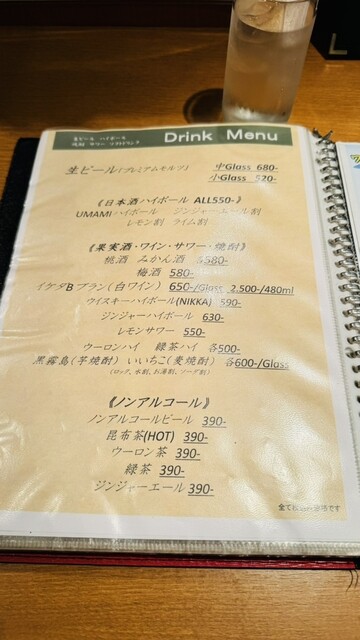 生ビール・ハイボール
Drink Menu
生ビール(プレミアムモルツ) 中Glass 680-
小Glass 520-
《日本酒ハイボール ALL550-》
UMAMIハイボール ジンジャーエール割
レモン割 ライム割
《果実酒・ワイン・サワー・焼酎》
桃酒 みかん酒 各580-
梅酒 580-
イケダB ブラン(白ワイン) 650-/Glass 2,500-/480ml
ウイスキーハイボール(NIKKA) 590-
ジンジャーハイボール 630-
レモンサワー 550-
ウーロンハイ 緑茶ハイ 各500-
黒霧島(芋焼酎) いいちこ(麦焼酎) 各600-/Glass
(ロック、水割、お湯割、ソーダ割)
《ノンアルコール》
ノンアルコールビール 390-
昆布茶(HOT) 390-
ウーロン茶 390-
緑茶 390-
ジンジャーエール 390-